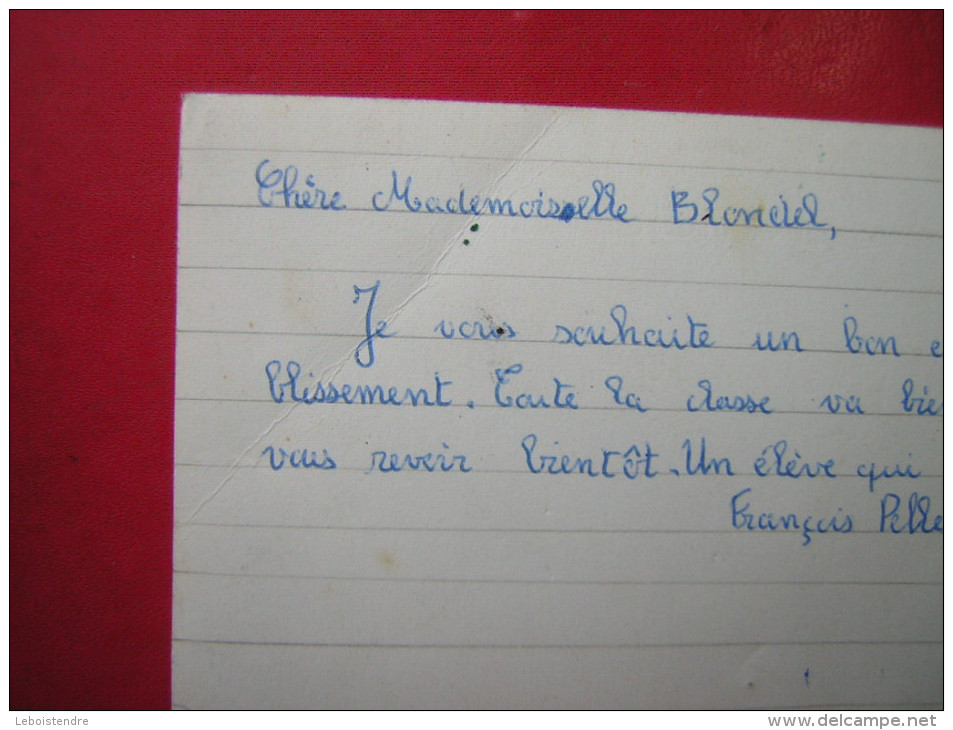 Chère Mademoiselle Blondel,
Je vous souhaite un bon
blissement. Toute la classe va bie
vous revoir bientôt. Un élève qui
François Pelle
Leboistendre
www.delcampe.net